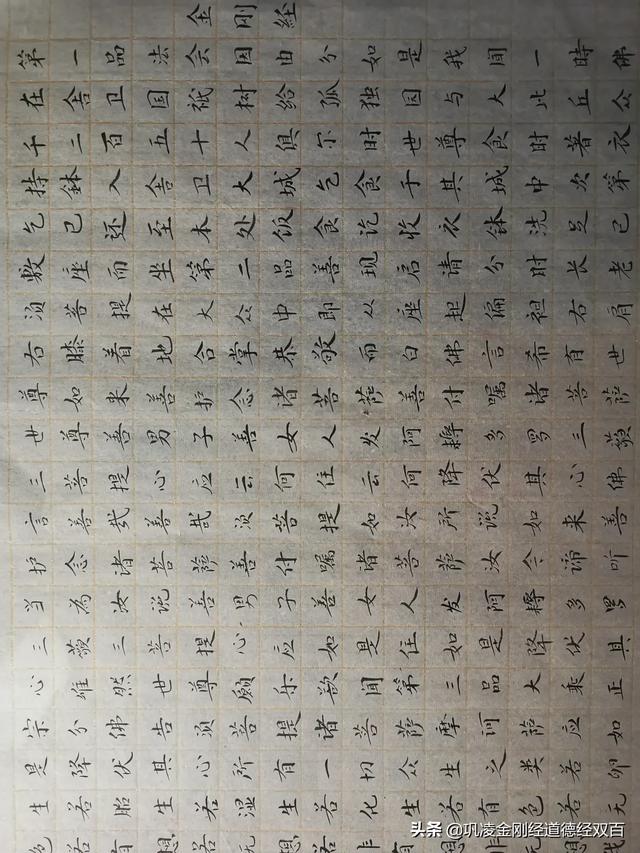 金刚經
第一品法会因由分如是我闻一時佛
在舍卫国祗树给孤独园与大比丘众
千二百五十人俱尔时世尊食时著衣
持鉢入舍卫大城乞食于其城中次第
乞已还至本处饭食讫收衣钵洗足已
敷座而坐第二品善现启请分时长老
须菩提在大众中即从座起偏袒右肩
右膝着地合掌恭敬而白佛言希有世
尊如来善护念诸菩萨善付嘱诸菩萨
世尊善男子善女人发阿耨多罗三藐
三菩提心应云何住云何降伏其心佛
言善哉善哉须菩提如汝所说如来善
护念诸菩萨善付嘱诸菩萨汝今谛听
当為汝说善男子善女人发阿耨多罗
三藐三菩提心应如是住如是降伏其
心唯然世尊願乐欲闻第三品大乘正
宗分佛告须菩提诸菩萨摩诃萨应如
是降伏其心所有一切众生之类若卵
生若胎生若湿生若化生若有色若无
头条 @巩凌金刚经道德经双百